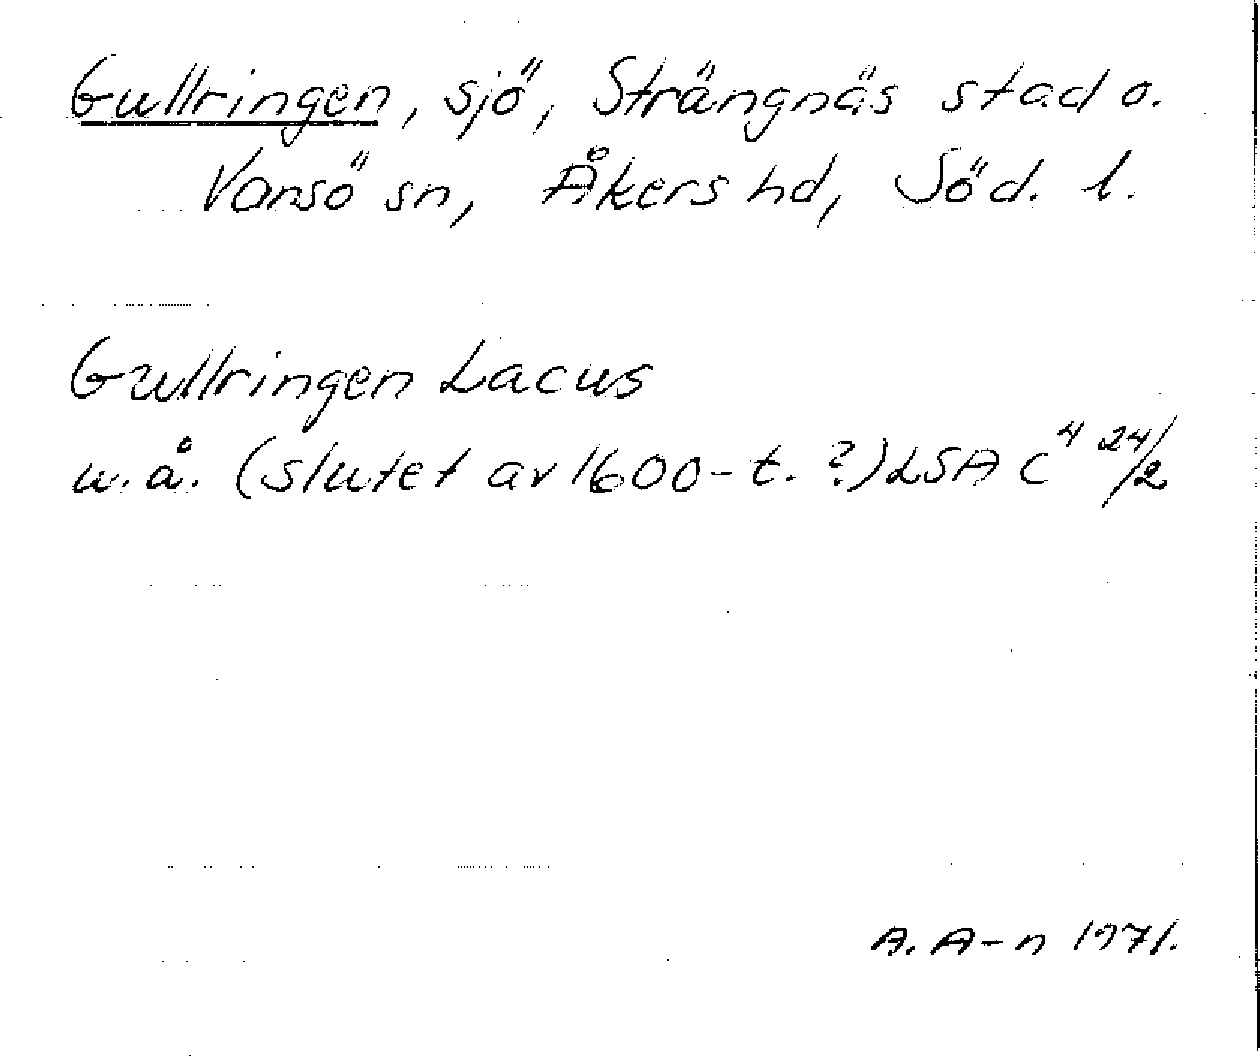 Gullringen, sjö, Strängnäs stad o.
Vansö sn, Åkers hd, Söd. l.
Gullringen Lacus
u.å. (slutet av 1600-t. ?) LSA C⁴ 24/2
A. A-n 1971.